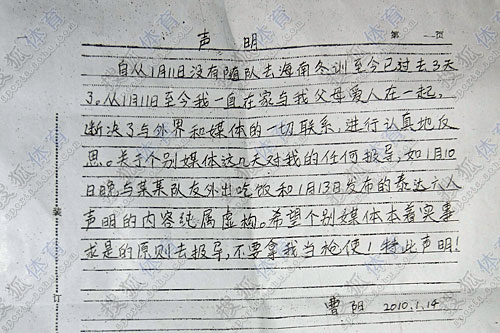 声 明
第 一页
自从1月11日没有随队去海南冬训至今已过去3天
了。从1月11日至今我一直在家与我父母爱人在一起,
断决了与外界和媒体的一切联系,进行认真地反
思。关于个别媒体这几天对我的任何报导,如1月10
日晚与某某队友外出吃饭和1月13日发布的泰达六人
声明的内容纯属虚构。希望个别媒体本着实事
求是的原则去报导,不要拿我当枪使!特此声明!
装
订
曹阳 2010.1.14
搜狐体育